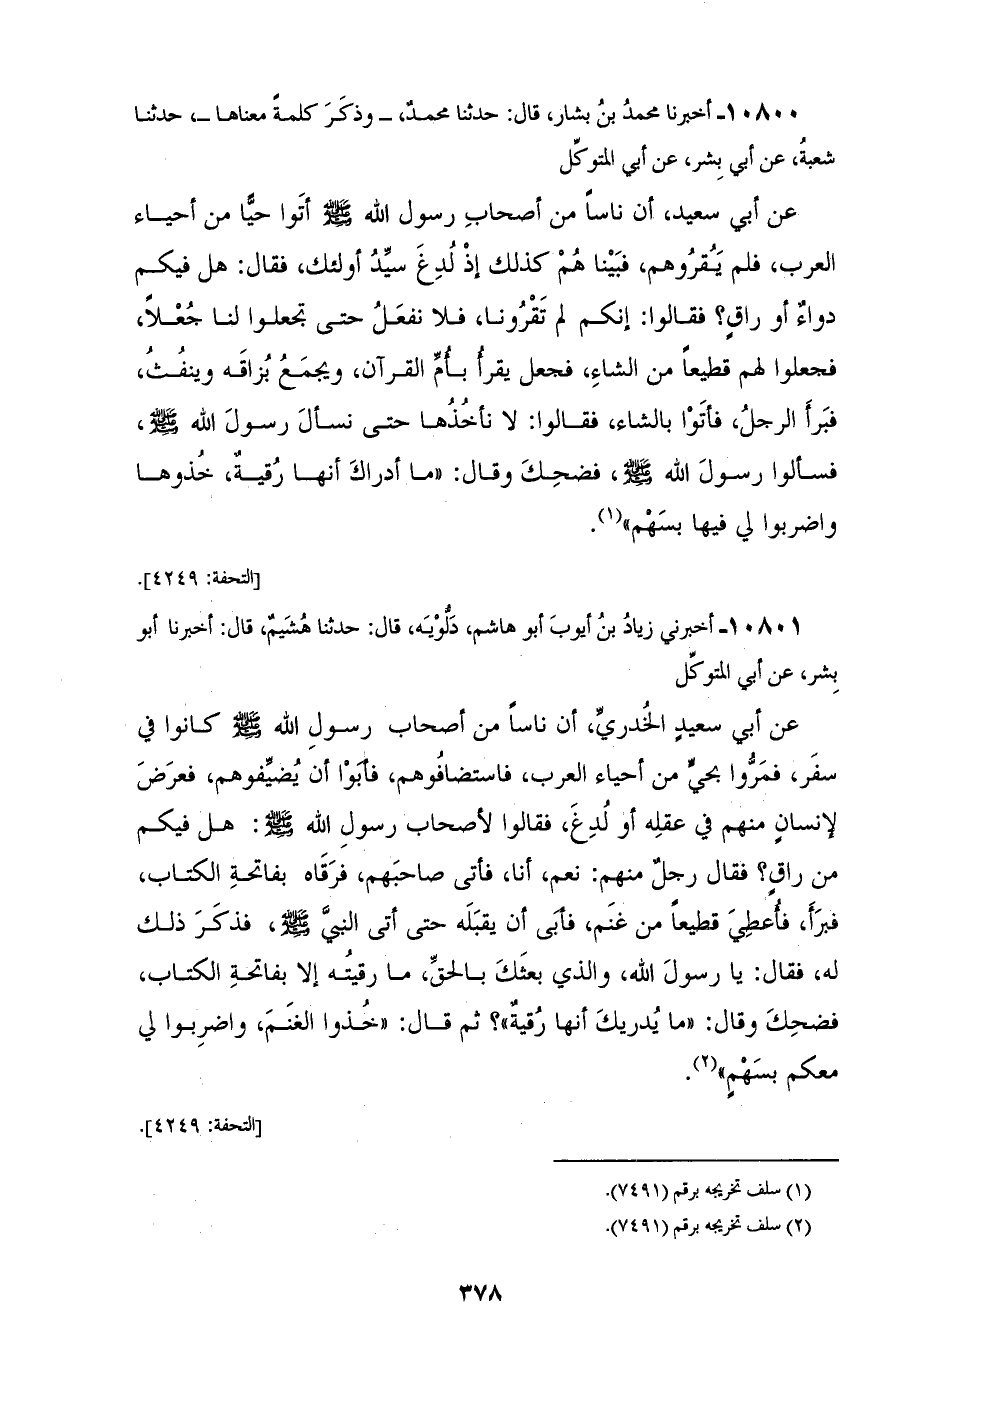 ١٠٨٠٠ـ أخبرنا محمدُ بنُ بشار، قال: حدثنا محمدٌ، ـ وذكَرَ كلمةً معناها ـ، حدثنا
شعبةُ، عن أبي بِشر، عن أبي المتوكِّل
عن أبي سعيد، أن ناساً من أصحابِ رسول الله ﷺ أتَوا حيًّا من أحياء
العرب، فلم يَقروهم، فبَيْنا هُمْ كذلك إذْ لُدِغَ سيِّدُ أولئك، فقال: هل فيكم
دواءٌ أو راقٍ؟ فقالوا: إنكم لم تَقْرُونا، فلا نفعَلُ حتى تجعلوا لنا جُعْلاً،
فجعلوا لهم قطيعاً من الشاءِ، فجعل يقرأُ بأُمِّ القرآن، ويجمَعُ بُزاقَه وينفُثُ،
فبَرأَ الرجلُ، فأتَوْا بالشاء، فقالوا: لا نأخُذُها حتى نسألَ رسولَ الله ﷺ،
فسألوا رسولَ الله ﷺ، فضحِكَ وقال: «ما أدراكَ أنها رُقيةٌ، خُذوها
واضربوا لي فيها بسَهْمٍ»(١).
[التحفة: ٤٢٤٩].
١٠٨٠١ـ أخبرني زيادُ بنُ أيوبَ أبو هاشم، دَلُّوْيَه، قال: حدثنا هُشَيمٌ، قال: أخبرنا أبو
بِشر، عن أبي المتوكِّل
عن أبي سعيدٍ الخُدريِّ، أن ناساً من أصحاب رسولِ الله ﷺ كانوا في
سفَر، فمَرُّوا بحيٍّ من أحياء العرب، فاستضافُوهم، فأبَوْا أن يُضيِّفوهم، فعرَضَ
لإنسانٍ منهم في عقلِه أو لُدِغَ، فقالوا لأصحاب رسولِ الله ﷺ: هل فيكم
من راقٍ؟ فقال رجلٌ منهم: نعم، أنا، فأتى صاحبَهم، فرَقَاه بفاتحةِ الكتاب،
فبرَأَ، فأُعطِيَ قطيعاً من غنَم، فأبَى أن يقبَلَه حتى أتى النبيَّ ﷺ، فذكَرَ ذلك
له، فقال: يا رسولَ الله، والذي بعثَكَ بالحقِّ، ما رقيتُه إلا بفاتحةِ الكتاب،
فضحِكَ وقال: «ما يُدريكَ أنها رُقيةٌ»؟ ثم قال: «خُذوا الغنَمَ، واضرِبوا لي
معكم بسَهْمٍ»(٢).
[التحفة: ٤٢٤٩].
(١) سلف تخريجه برقم (٧٤٩١).
(٢) سلف تخريجه برقم (٧٤٩١).
٣٧٨